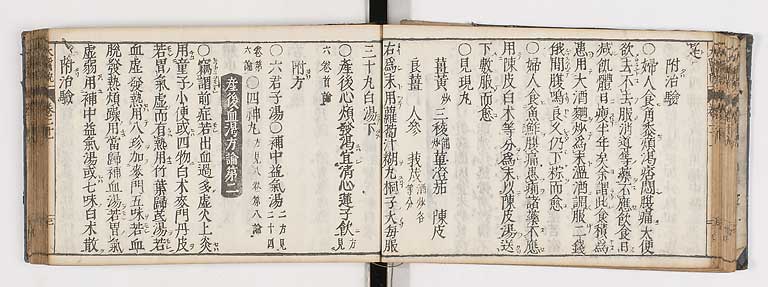 附治驗
〇婦人食角黍煩渴脹悶腹痛大便
欲去不去服消導等藥不應飲食日
減肌體日瘦半年矣余謂此食積為
患用大酒麯炒為末溫酒調服二錢
俄間腹鳴良久仍下粽而愈
〇婦人食魚鮮腹痛患痢諸藥不應
用陳皮白朮等分為末以陳皮湯送
下數服而愈
〇見晛丸
薑黃 三稜 蓽澄茄 陳皮
良薑 人參 莪朮
右為末用蘿蔔汁糊丸梧子大每服
三十丸白湯下
〇產後心煩發渴宜清心蓮子飲
附方
〇六君子湯〇補中益氣湯
〇四神丸 方見八卷第八論
產後血渴方論第二
〇竊謂前症若出血過多虛火上炎
用童子小便或四物白朮麥門丹皮
若胃氣虛而有熱用竹葉歸芪湯若
血虛發熱用八珍加麥門五味若血
脫發熱煩躁用當歸補血湯若胃氣
虛弱用補中益氣湯或七味白朮散
附治驗